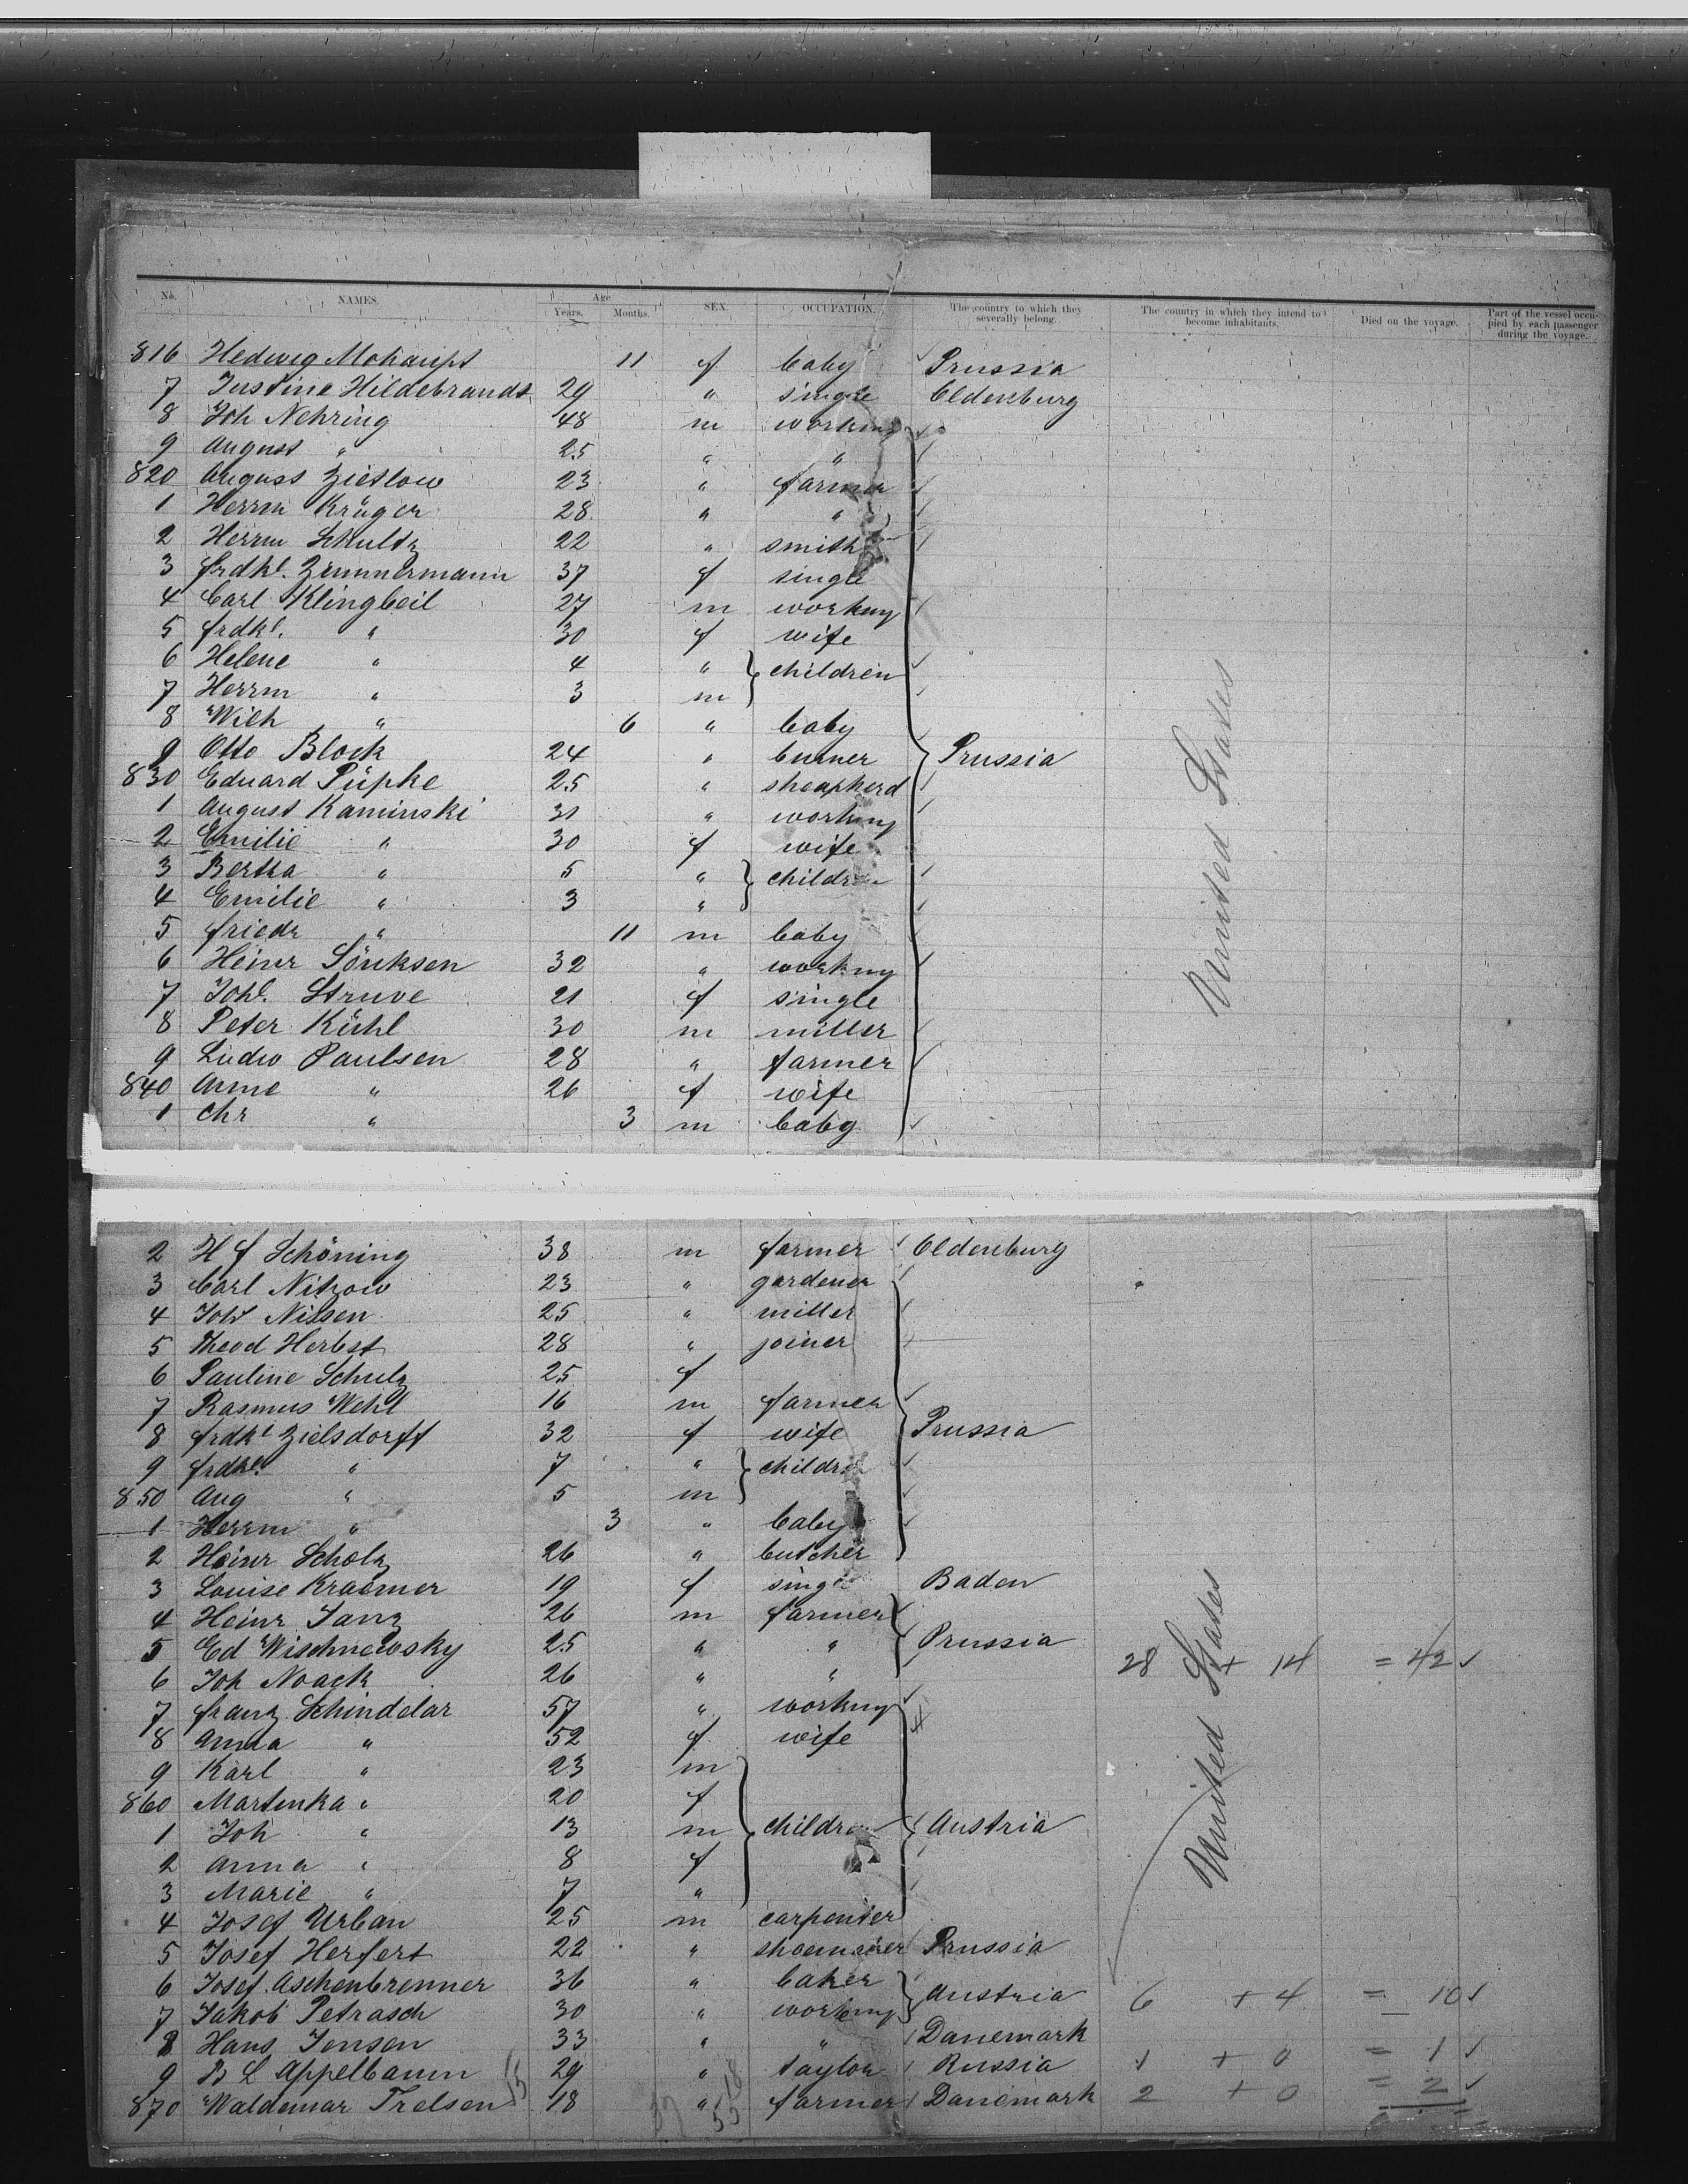 No. NAMES. Age Years. Months. SEX. OCCUPATION. The country to which they severally belong. The country in which they intend to become inhabitants. Died on the voyage. Part of the vessel occupied by each passenger during the voyage.
816 Hedwig Mohaupt 11 f baby Prussia
7 Justine Hildebrandt 29 " single Oldenburg
8 Joh Nehring 48 m working
9 August " 25 " "
820 August Zietlow 23 " farmer
1 Herrm Krüger 28 " "
2 Herrm Schultz 22 " smith
3 frdke. Zimmermann 37 f single
4 Carl Klingbeil 27 m working
5 frdke. " 30 f wife
6 Helene " 4 " children
7 Herrm " 3 m
8 Wilh " 6 " baby
9 Otto Block 24 " Prussia
830 Eduard Püpke 25 " sheapherd
1 August Kaminski 31 " working
2 Emilie " 30 f wife
3 Bertha " 5 " children
4 Emilie " 3 "
5 friedr " 11 m baby
6 Heinr Sönksen 32 " working
7 Johe. Struve 21 f single
8 Peter Kühl 30 m miller
9 Ludw Paulsen 28 " farmer
840 Anne " 26 f wife
1 Chr " 3 m baby
United States
2 H f Schöning 38 m farmer Oldenburg
3 Carl Nitzow 23 " gardener
4 Joh Nissen 25 " miller
5 Theod Herbst 28 " joiner
6 Pauline Schulz 25 f
7 Rasmus Wehl 16 m farmer
8 frdke Zielsdorff 32 f wife Prussia
9 frdke. " 7 " children
850 Aug " 5 m
1 Herrm " 3 " baby
2 Heinr Scholz 26 " butcher
3 Louise Kraemer 19 f single Baden
4 Heinr Janz 26 m farmer
5 Ed Wischnewsky 25 " " Prussia 28 + 14 = 42
6 Joh Noack 26 " "
7 franz Schindelar 57 " working
8 Anna " 52 f wife
9 Karl " 23 m
860 Martinka " 20 f
1 Joh " 13 m children Austria
2 Anna " 8 f
3 Marie " 7 "
4 Josef Urban 25 m carpenter
5 Josef Herfert 22 " shoemaker Prussia
6 Josef Aschenbrenner 36 " baker Austria 6 + 4 = 10
7 Jakob Petrasch 30 " working
8 Hans Jensen 33 " " Danemark
9 B L Appelbaum 29 " taylor Russia 1 + 0 = 1
870 Waldemar Trelsen 18 " farmer Danemark 2 + 0 = 2
United States